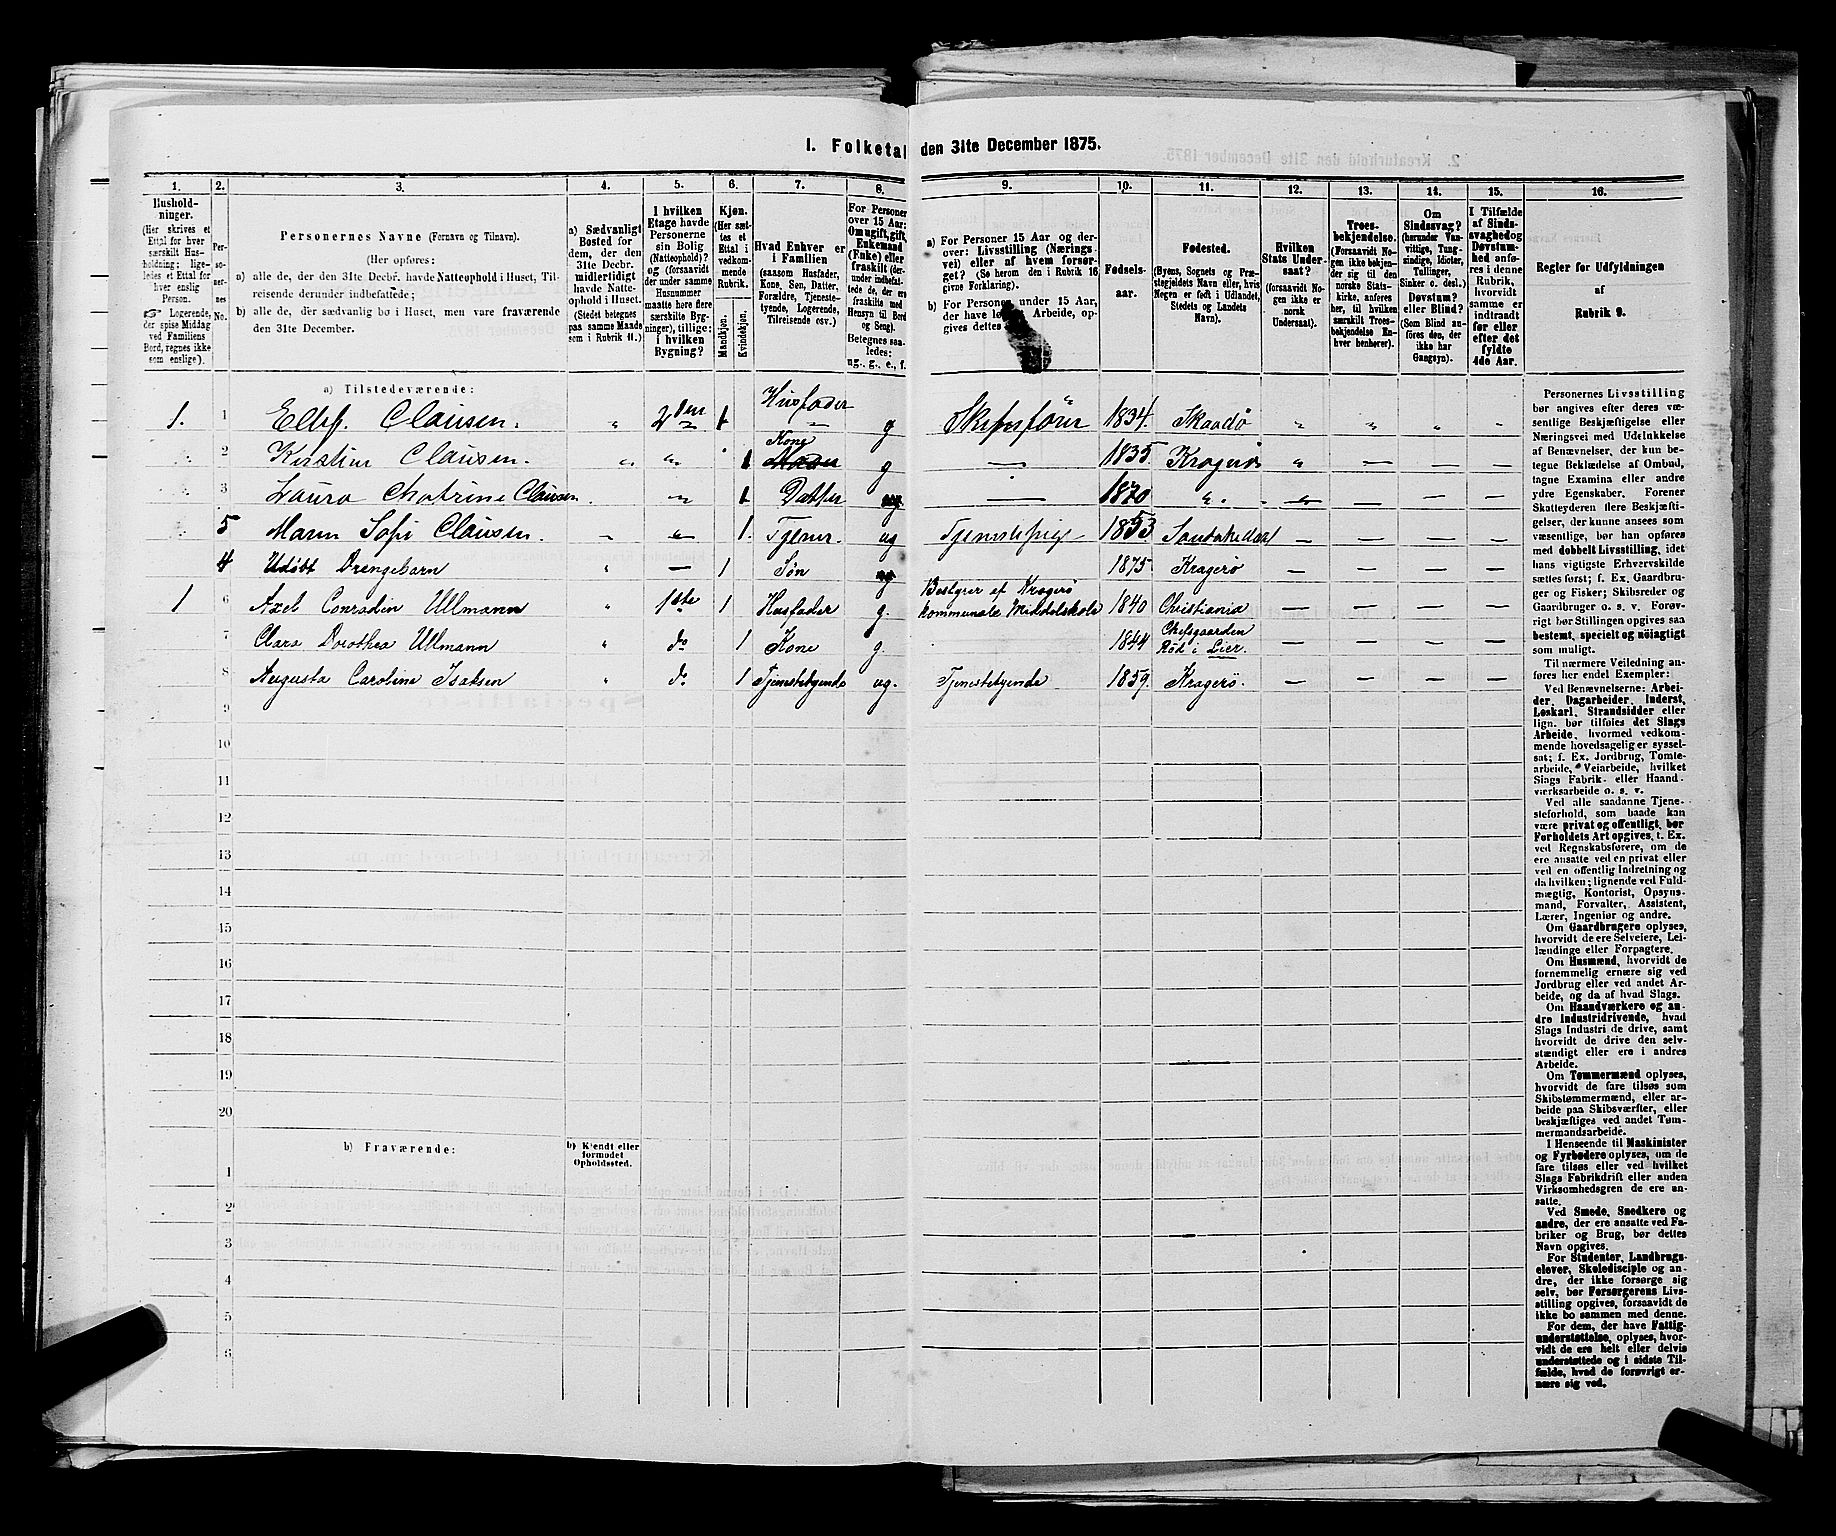 I. Folketal den 31te December 1875.
1. 2. 3. 4. 5. 6. 7. 8. 9. 10. 11. 12. 13. 14. 15. 16.
Husholdninger.
(Her skrives et
Ettal for hver
særskilt Husholdning; ligeledes
et Ettal for
hver enslig
Person.
Logerende,
der spise Middag
ved Familiens
Bord, regnes ikke
som enslige).
Personernes
No.
Personernes Navne (Fornavn og Tilnavn).
(Her opføres:
a) alle de, der den 31te Decbr. havde Natteophold i Huset, Tilreisende derunder indbefattede;
b) alle de, der sædvanlig bo i Huset, men vare fraværende
den 31te December.
a) Sædvanligt
Bosted for
dem, der den
31te Decbr.
midlertidigt
havde Natteophold i Huset.
(Stedet betegnes
paa samme Maade
som i Rubrik 11.)
I hvilken
Etage havde
Personerne
sin Bolig
(Natteophold)?
og (forsaavidt
der under samme
Husnummer
maatte høre flere
særskilte Bygninger), tillige:
i hvilken
Bygning?
Kjøn.
(Her sættes et
Ettal i
vedkommende
Rubrik.
Mandkjøn.
Kvindekjøn.
Hvad Enhver er
i Familien
(saasom Husfader,
Kone, Søn, Datter,
Forældre, Tjenestetyende, Logerende,
Tilreisende osv.)
For Personer
over 15 Aar:
Om ugift, gift,
Enkemand
(Enke) eller
fraskilt (derunder
indbefattede
de, der ere
fraskilte med
Hensyn til Bord
og Seng).
Betegnes saaledes:
ug., g., e., f.
a) For Personer 15 Aar og derover: Livsstilling (Næringsvei) eller af hvem forsørget? (Se herom den i Rubrik 16
givne Forklaring).
b) For Personer under 15 Aar,
der have lø Arbeide, opgives dettes
Fødselsaar.
Fødested.
(Byens, Sognets og Præstegjeldets Navn eller, hvis
Nogen er født i Udlandet,
Stedets og Landets
Navn).
Hvilken
Stats Undersaat?
(forsaavidt Nogen ikke er
norsk
Undersaat).
Troesbekjendelse.
(Forsaavidt Nogen ikke bekjender sig til den
norske Statskirke, anføres
her, til hvilken
særskilt Troesbekjendelse Enhver benhører).
Om
Sindssvag?
(herunder Vanvittige, Tungsindige, Idioter,
Tullinger,
Sinker o. desl.)
Døvstum?
eller Blind?
(Som Blind anføres den, der
ikke har
Gangsyn).
I Tilfælde
af Sindssvaghed og
Døvstumhed anføres i denne
Rubrik,
hvorvidt
samme er
indtraadt
før eller
efter det
fyldte
4de Aar.
Regler for Udfyldningen
af
Rubrik 9.
a) Tilstedeværende:
1. 1 Ellef Clausen. 2den Husfader g Skibsfører 1834. Skaadø
2 Kirstine Clausen. 1 Kone g 1835 Kragerø
3 Laura Chatrine Clausen 1 Datter 1870
5 Maren Sofi Clausen 1. Tjener. ug 1853 Sandøkedal
4 Udøbt Drengebarn 1 Søn 1875 Kragerø
1 6 Axel Conradin Ullmann 1ste 1 Husfader g. Bestyrer af Kragerø kommunale Middelskole 1840 Christiania
7 Clara Dorothea Ullmann do 1 Kone g. 1844 Chefsgaarden Rød i Lier.
8 Augusta Caroline Isaksen do 1 Tjenestetyende ug. Tjenestetyende 1859. Kragerø.
9
10
11
12
13
14
15
16
17
18
19
20
b) Fraværende:
b) Kjendt eller
formodet
Opholdssted.
1
2
3
4
5
6
Personernes Livsstilling
bør angives efter deres væsentlige Beskjæftigelse eller
Næringsvei med Udelukkelse
af Benævnelser, der kun betegne Beklædelse af Ombud,
tagne Examina eller andre
ydre Egenskaber. Forener
Skatteyderen flere Beskjæftigelser, der kunne ansees som
væsentlige, bør han opføres
med dobbelt Livsstilling, idet
hans vigtigste Erhvervskilde
sættes først; f. Ex. Gaardbruger og Fisker; Skibsreder og
Gaardbruger o. s. v. Forøvrigt bør Stillingen opgives saa
bestemt, specielt og nøiagtigt
som muligt.
Til nærmere Veiledning anføres her endel Exempler:
Ved Benævnelserne: Arbeider, Dagarbeider, Inderst,
Løskarl, Strandsidder eller
lign. bør tilføies det Slags
Arbeide, hvormed vedkommende hovedsagelig er sysselsat; f. Ex. Jordbrug, Tomtearbeide, Veiarbeide, hvilket
Slags Fabrik- eller Haandværksarbeide o. s. v.
Ved alle saadanne Tjenesteforhold, som baade kan
være privat og offentligt, bør
Forholdets Art opgives, t. Ex.
ved Regnskabsførere, om de
ere ansatte ved en privat eller
ved en offentlig Indretning og
da hvilken; lignende ved Fuldmægtig, Kontorist, Opsynsmand, Forvalter, Assistent,
Lærer, Ingeniør og andre.
Om Gaardbrugere oplyses,
hvorvidt de ere Selveiere, Leilændinge eller Forpagtere.
Om Husmænd, hvorvidt de
fornemmelig ernære sig ved
Jordbrug eller ved andet Arbeide, og da af hvad Slags.
Om Haandværkere og andre Industridrivende, hvad
Slags Industri de drive, samt
hvorvidt de drive den selvstændigt eller ere i andres
Arbeide.
Om Tømmermænd oplyses,
hvorvidt de fare tilsøs som
Skibstømmermænd, eller arbeide paa Skibsværfter, eller
beskjæftiges ved andet Tømmermandsarbeide.
I Henseende til Maskinister
og Fyrbødere oplyses, om de
fare tilsøs eller ved hvilket
Slags Fabrikdrift eller anden
Virksomhedsgren de ere ansatte.
Ved Smede, Snedkere og
andre, der ere ansatte ved Fabriker og Brug, bør dettes
Navn opgives.
For Studenter, Landbrugselever, Skoledisciple og andre, der ikke forsørge sig
selv, bør Forsørgerens Livsstilling opgives, forsaavidt de
ikke bo sammen med denne.
For dem, der have Fattigunderstøttelse, oplyses, hvorvidt de ere helt eller delvis
understøttede og i sidste Tilfælde, hvad de forøvrigt ernære sig ved.